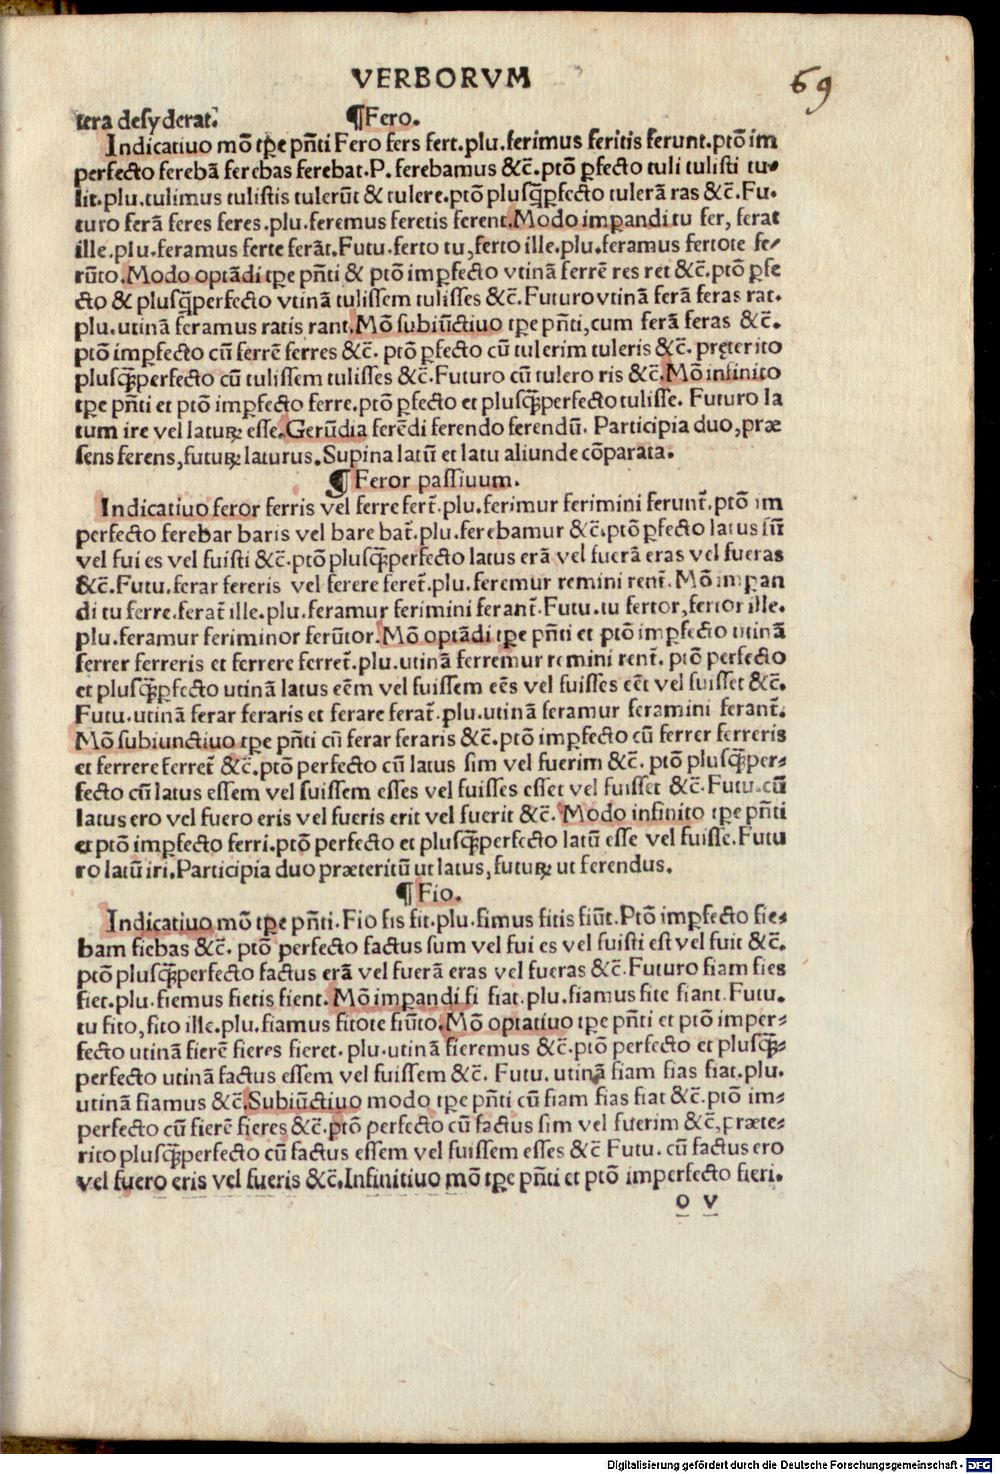 VERBORVM
69
tera desyderat. ¶Fero.
Indicatiuo mõ tꝑe pñti Fero fers fert.plu.ferimus feritis ferunt.ptõ im
perfecto ferebã ferebas ferebat.P.ferebamus &c̃.ptõ ꝑfecto tuli tulisti tu-
lit.plu.tulimus tulistis tulerũt & tulere.ptõ plusq̃ꝑfecto tulerã ras &c̃.Fu-
turo ferã feres feres.plu.feremus feretis ferent.Modo impandi tu fer, ferat
ille.plu.feramus ferte ferãt.Futu.ferto tu,ferto ille.plu.feramus fertote fe-
rũto.Modo optãdi tꝑe pñti & ptõ imꝑfecto vtinã ferrẽ res ret &c̃.ptõ ꝑfe
cto & plusq̃perfecto vtinã tulissem tulisses &c̃.Futuro vtinã ferã feras rat.
plu.utinã feramus ratis rant.Mõ subiũctiuo tꝑe pñti,cum ferã feras &c̃.
ptõ imꝑfecto cũ ferrẽ ferres &c̃. ptõ ꝑfecto cũ tulerim tuleris &c̃. pręterito
plusq̃perfecto cũ tulissem tulisses &c̃.Futuro cũ tulero ris &c̃.Mõ infinito
tꝑe pñti et ptõ imꝑfecto ferre.ptõ ꝑfecto et plusq̃perfecto tulisse. Futuro la
tum ire vel latuꝝ esse.Gerũdia ferẽdi ferendo ferendũ. Participia duo,præ
sens ferens,futuꝝ laturus.Supina latũ et latu aliunde cõparata.
¶Feror passiuum.
Indicatiuo feror ferris vel ferre fert̃.plu.ferimur ferimini ferunt̃.ptõ im
perfecto ferebar baris vel bare bat̃.plu.ferebamur &c̃.ptõ ꝑfecto latus sũ
vel fui es vel fuisti &c̃.ptõ plusq̃perfecto latus erã vel fuerã eras vel fueras
&c̃.Futu.ferar fereris vel ferere feret̃.plu.feremur remini rent̃.Mõ impan
di tu ferre.ferat̃ ille.plu.feramur ferimini ferant̃.Futu.tu fertor,fertor ille.
plu.feramur feriminor ferũtor.Mõ optãdi tꝑe pñti et ptõ imꝑfecto utinã
ferrer ferreris et ferrere ferret̃.plu.utinã ferremur remini rent̃. ptõ perfecto
et plusq̃ꝑfecto utinã latus eẽm vel fuissem eẽs vel fuisses eẽt vel fuisset &c̃.
Futu.utinã ferar feraris et ferare ferat̃.plu.utinã feramur feramini ferant̃.
Mõ subiunctiuo tꝑe pñti cũ ferar feraris &c̃.ptõ imꝑfecto cũ ferrer ferreris
et ferrere ferret̃ &c̃.ptõ perfecto cũ latus sim vel fuerim &c̃. ptõ plusq̃per-
fecto cũ latus essem vel fuissem esses vel fuisses esset vel fuisset &c̃.Futu.cũ
latus ero vel fuero eris vel fueris erit vel fuerit &c̃. Modo infinito tꝑe pñti
et ptõ imꝑfecto ferri.ptõ perfecto et plusq̃perfecto latũ esse vel fuisse.Futu
ro latũ iri.Participia duo præteritũ ut latus,futuꝝ ut ferendus.
¶Fio.
Indicatiuo mõ tꝑe pñti.Fio fis fit.plu.fimus fitis fiũt.Ptõ imꝑfecto fie-
bam fiebas &c̃. ptõ perfecto factus sum vel fui es vel fuisti est vel fuit &c̃.
ptõ plusq̃perfecto factus erã vel fuerã eras vel fueras &c̃.Futuro fiam fies
fiet.plu.fiemus fietis fient.Mõ impandi fi fiat.plu.fiamus fite fiant.Futu.
tu fito,fito ille.plu.fiamus fitote fiũto.Mõ optatiuo tꝑe pñti et ptõ imper-
fecto utinã fierẽ fieres fieret.plu.utinã fieremus &c̃.ptõ perfecto et plusq̃-
perfecto utinã factus essem vel fuissem &c̃. Futu.utinã fiam fias fiat.plu.
utinã fiamus &c̃.Subiũctiuo modo tꝑe pñti cũ fiam fias fiat &c̃.ptõ im-
perfecto cũ fierẽ fieres &c̃.ptõ perfecto cũ factus sim vel fuerim &c̃,præte-
rito plusq̃perfecto cũ factus essem vel fuissem esses &c̃ Futu. cũ factus ero
vel fuero eris vel fueris &c̃.Infinitiuo mõ tꝑe pñti et ptõ imperfecto fieri.
o v
Digitalisierung gefördert durch die Deutsche Forschungsgemeinschaft - DFG